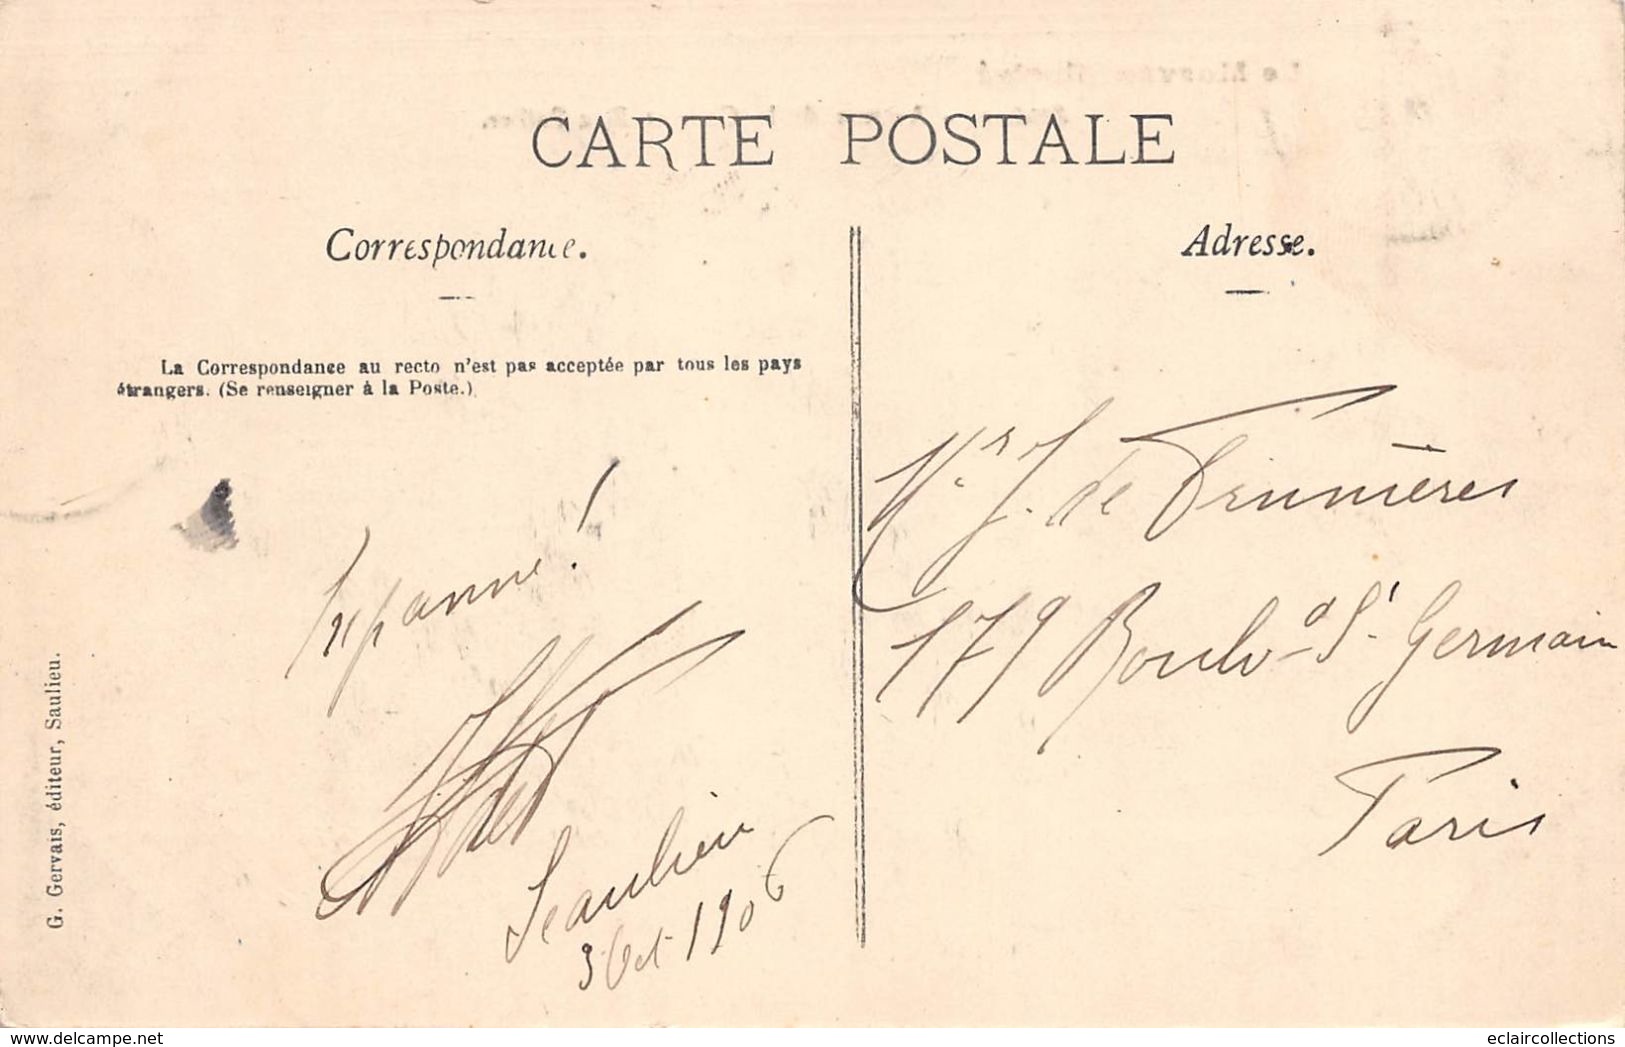 CARTE POSTALE
Correspondance.
Adresse.
La Correspondance au recto n'est pas acceptée par tous les pays
étrangers. (Se renseigner à la Poste.)
en panne !
Saulieu
3 Oct 1906
Mr J. de
179 Boulvd St Germain
Paris
G. Gervais, éditeur, Saulieu.
www.delcampe.net
eclaircollections